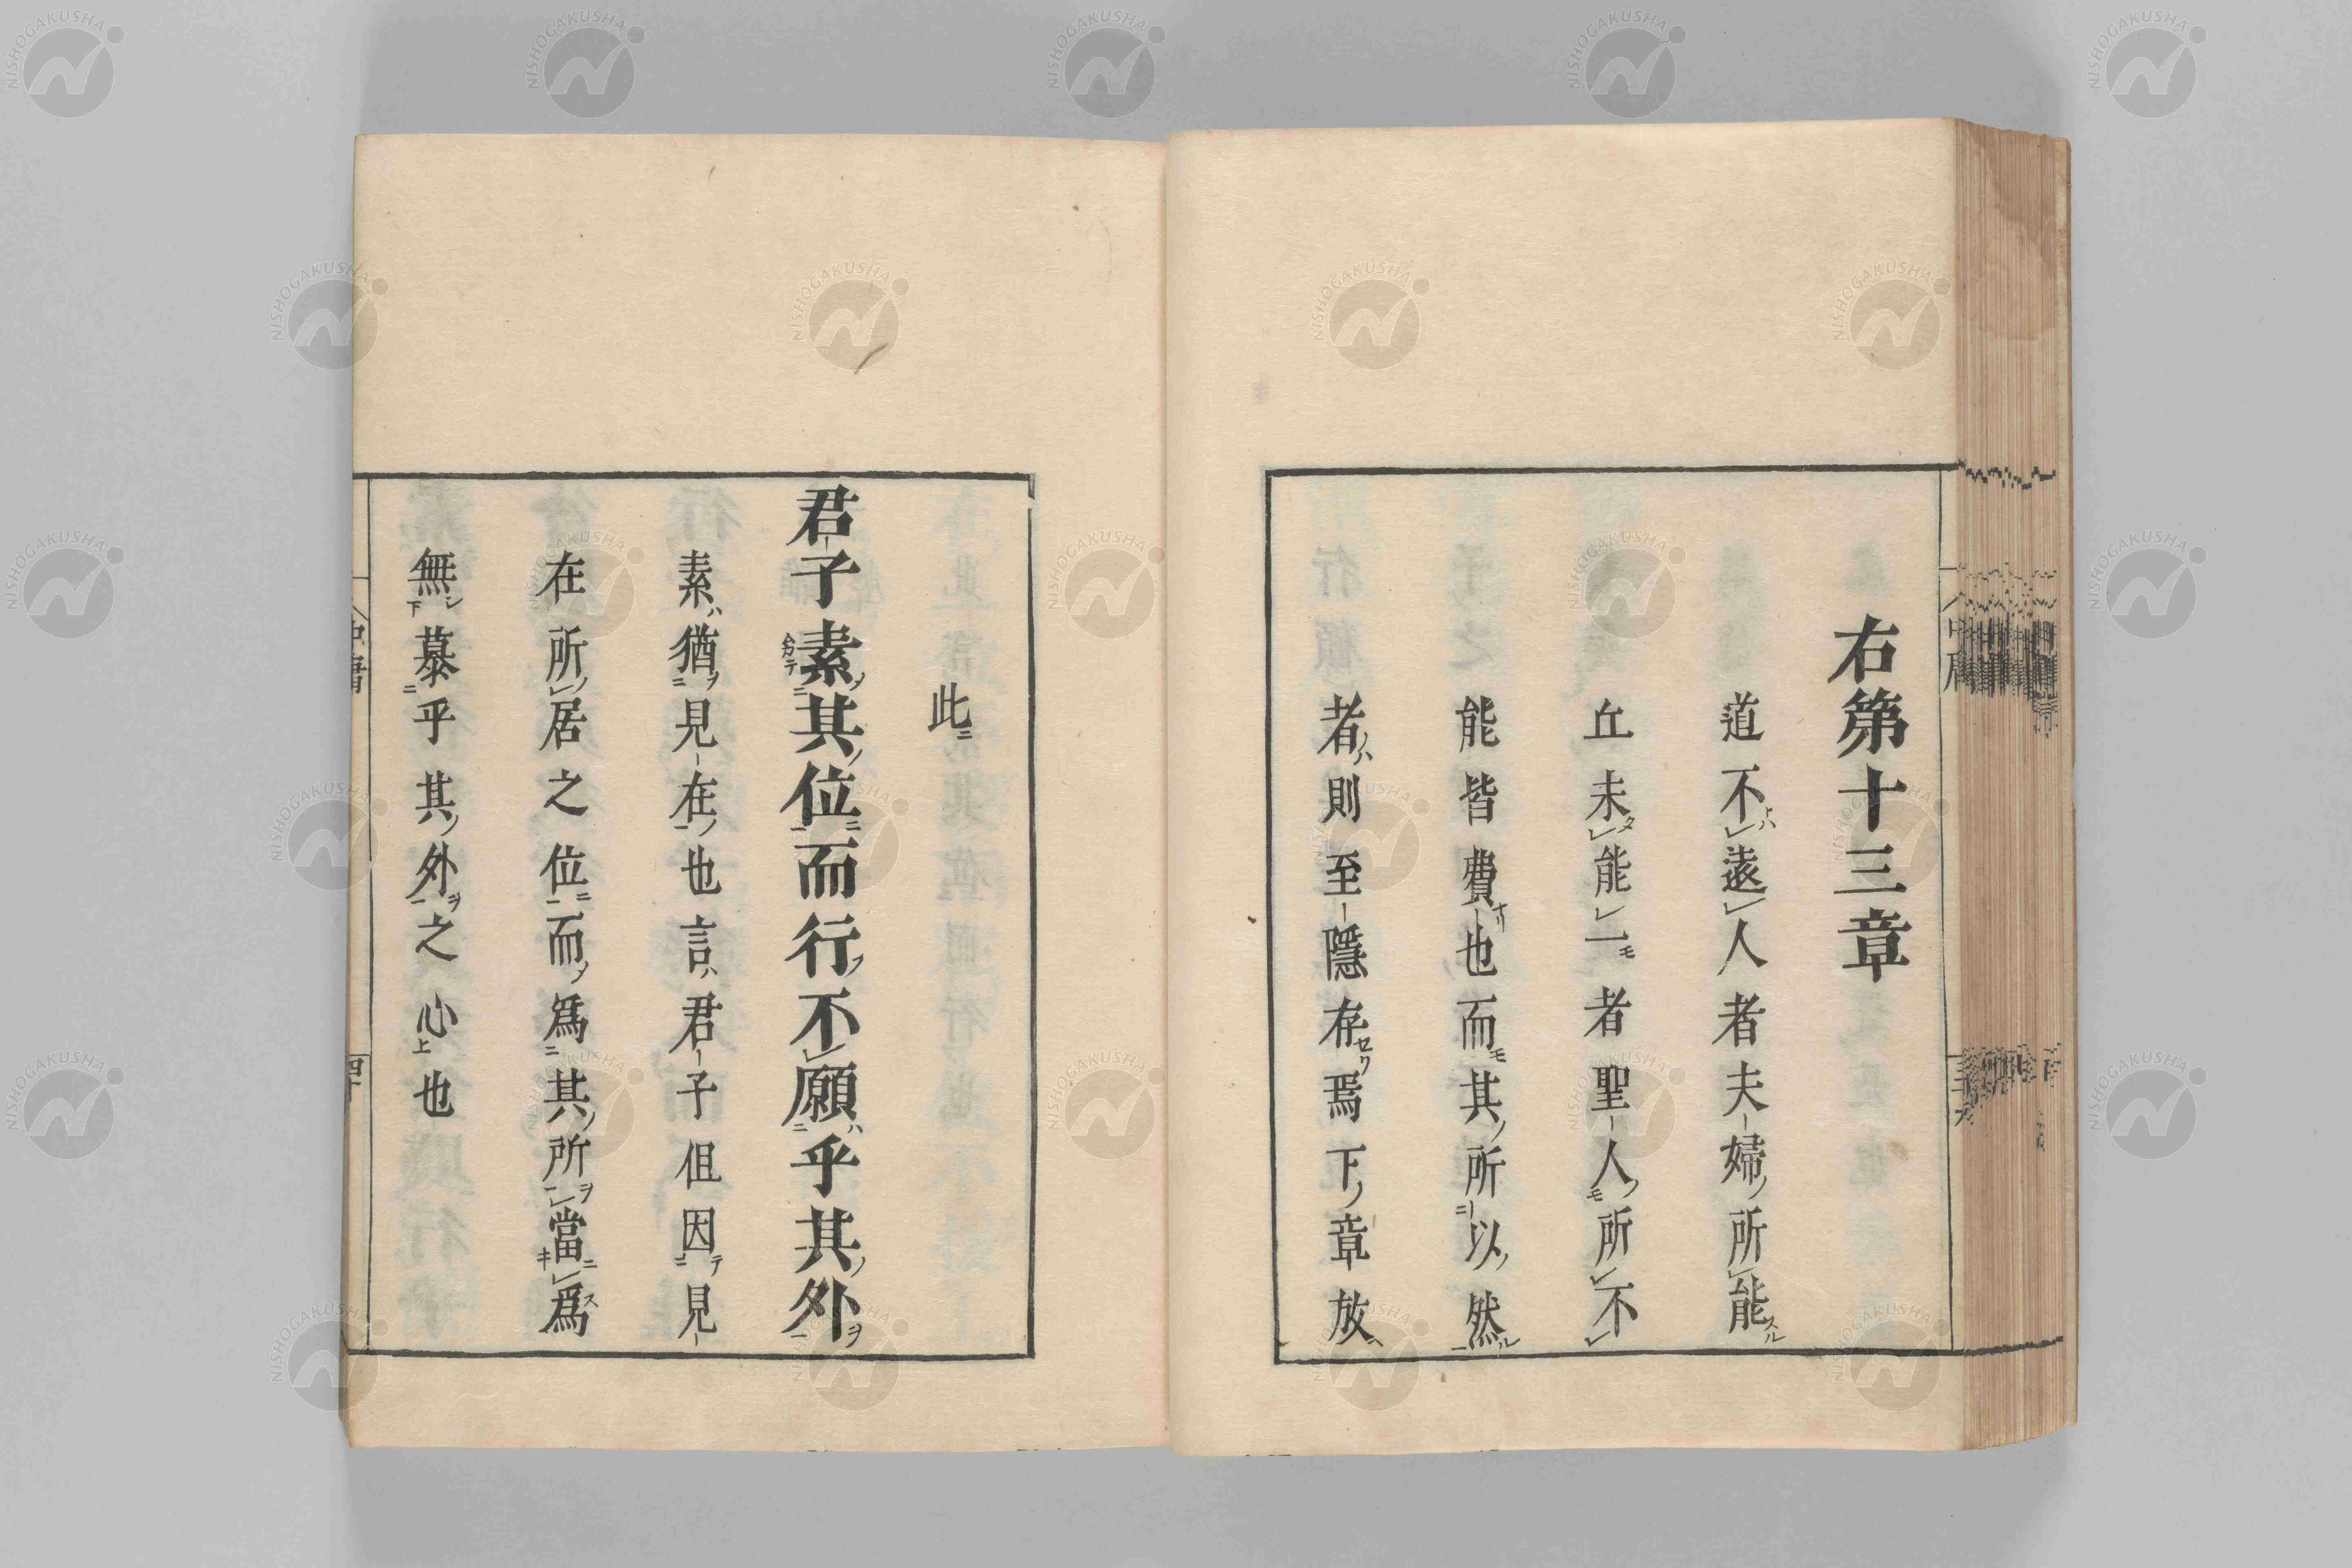 右第十三章
道不遠人者夫婦所能
丘未能一者聖人所不
能皆費也而其所以然
者則至隱存焉下章放
此
君子素其位而行不願乎其外
素猶見在也言君子但因見
在所居之位而爲其所當爲
無慕乎其外之心也
中庸
NISHOGAKUSHA